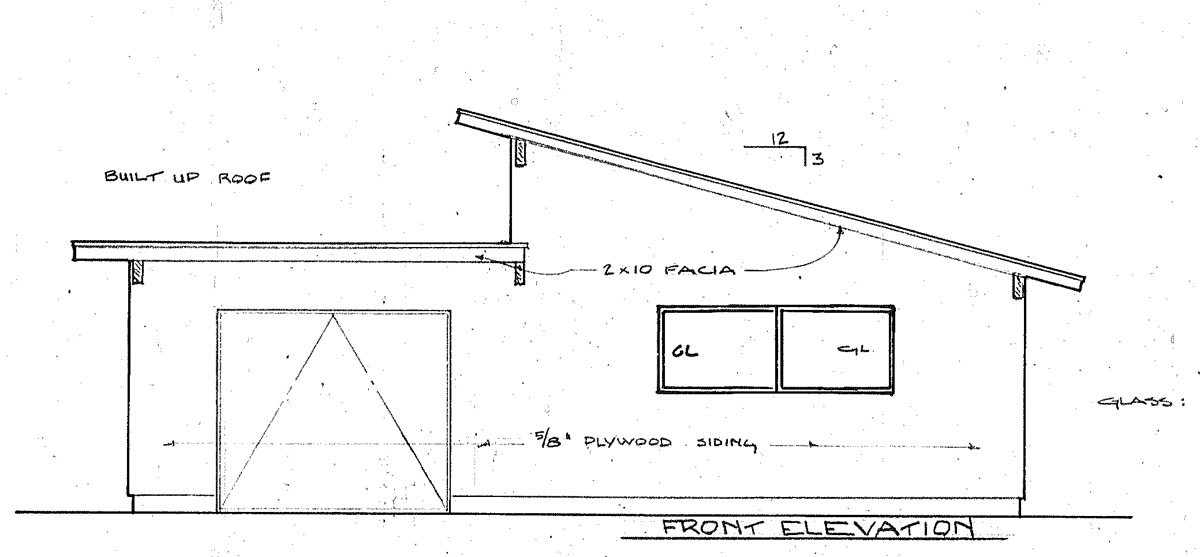 12
3
BUILT UP ROOF
2x10 FACIA
GL
GL
GLASS:
5/8" PLYWOOD SIDING
FRONT ELEVATION